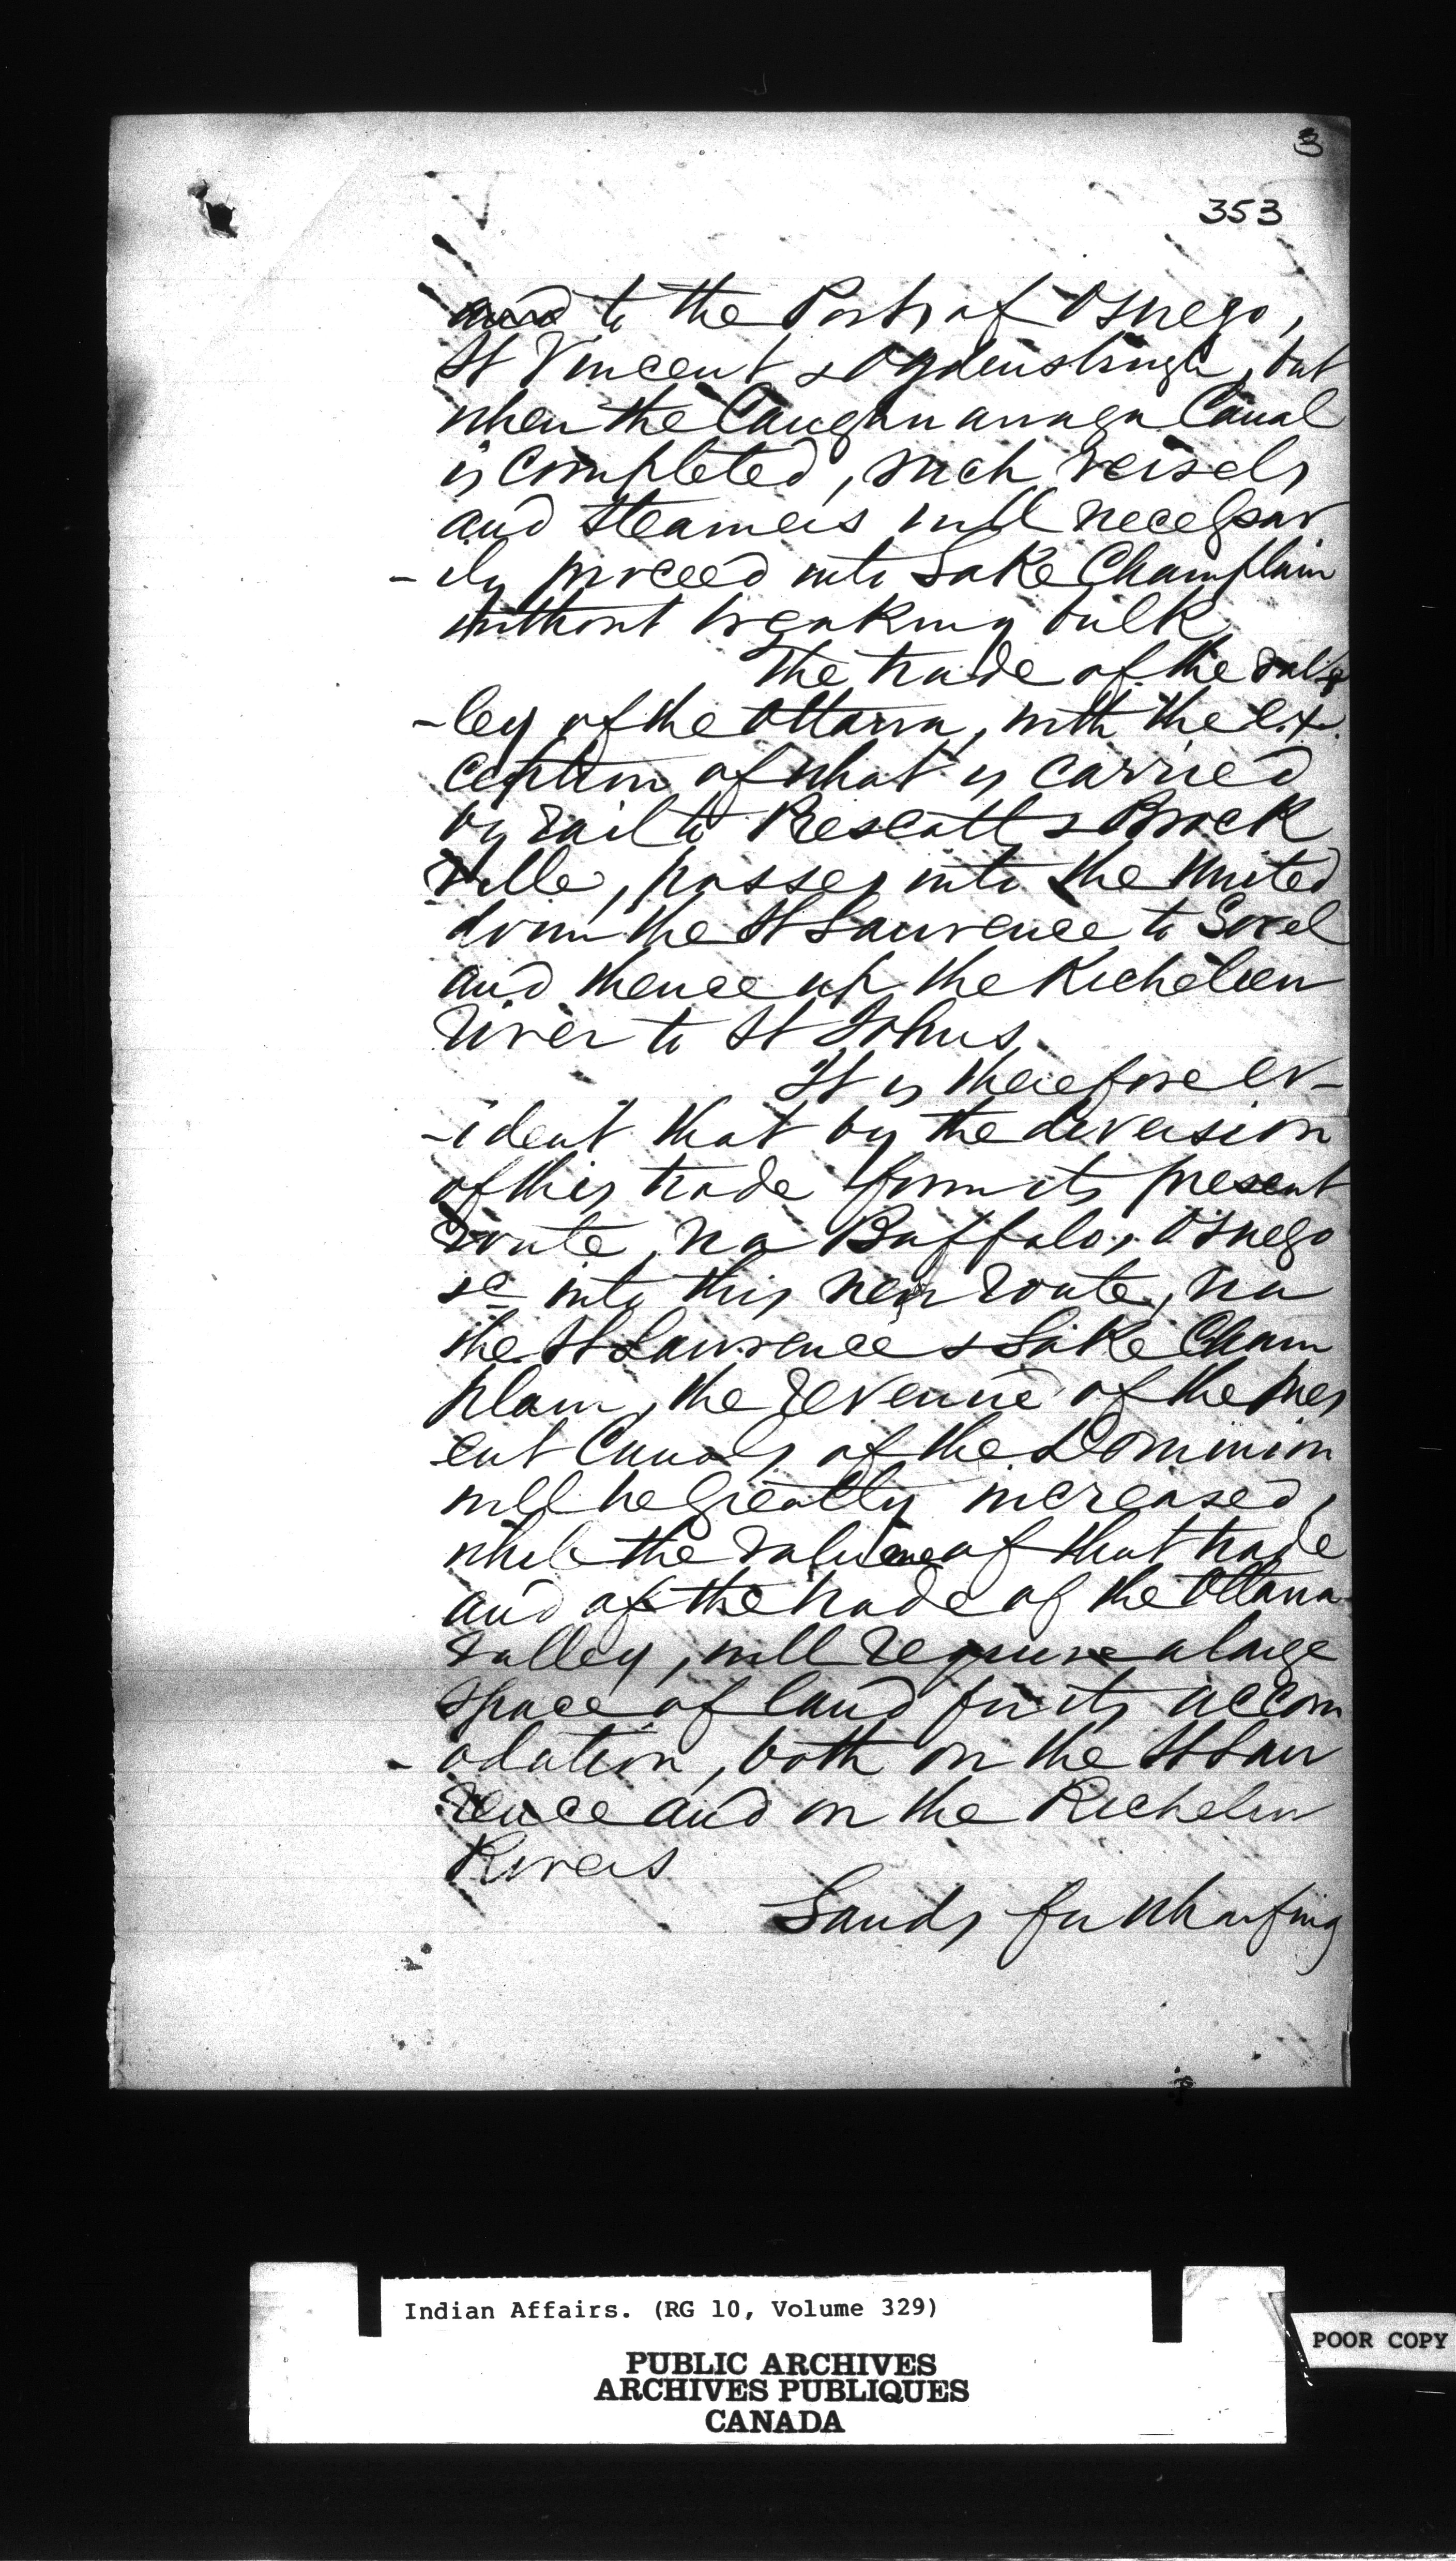 3
353
and to the Ports of Oswego,
St Vincent & Ogdensburgh, but
when the Caughnawaga Canal
is completed, such vessels
and steamers will necessar
- ily proceed into Lake Champlain
without breaking bulk
The trade of the val
-ley of the Ottawa, with the ex-
ception of what is carried
by rail to Prescott & Brock
ville, passes into the United
down the St Lawrence to Sorel
and thence up the Richelieu
River to St Johns
It is therefore ev-
-ident that by the diversion
of this trade from its present
route, via Buffalo, Oswego
&c into this new route, via
the St Lawrence & Lake Cham
plain, the revenue of the pres
ent Canals of the Dominion
will be greatly increased,
while the volume of that trade
and of the trade of the Ottawa
valley, will require a large
space of land for its accom
- odation, both on the St Law
rence and on the Richelieu
Rivers
Lands for wharfing
Indian Affairs. (RG 10, Volume 329)
PUBLIC ARCHIVES
ARCHIVES PUBLIQUES
CANADA
POOR COPY